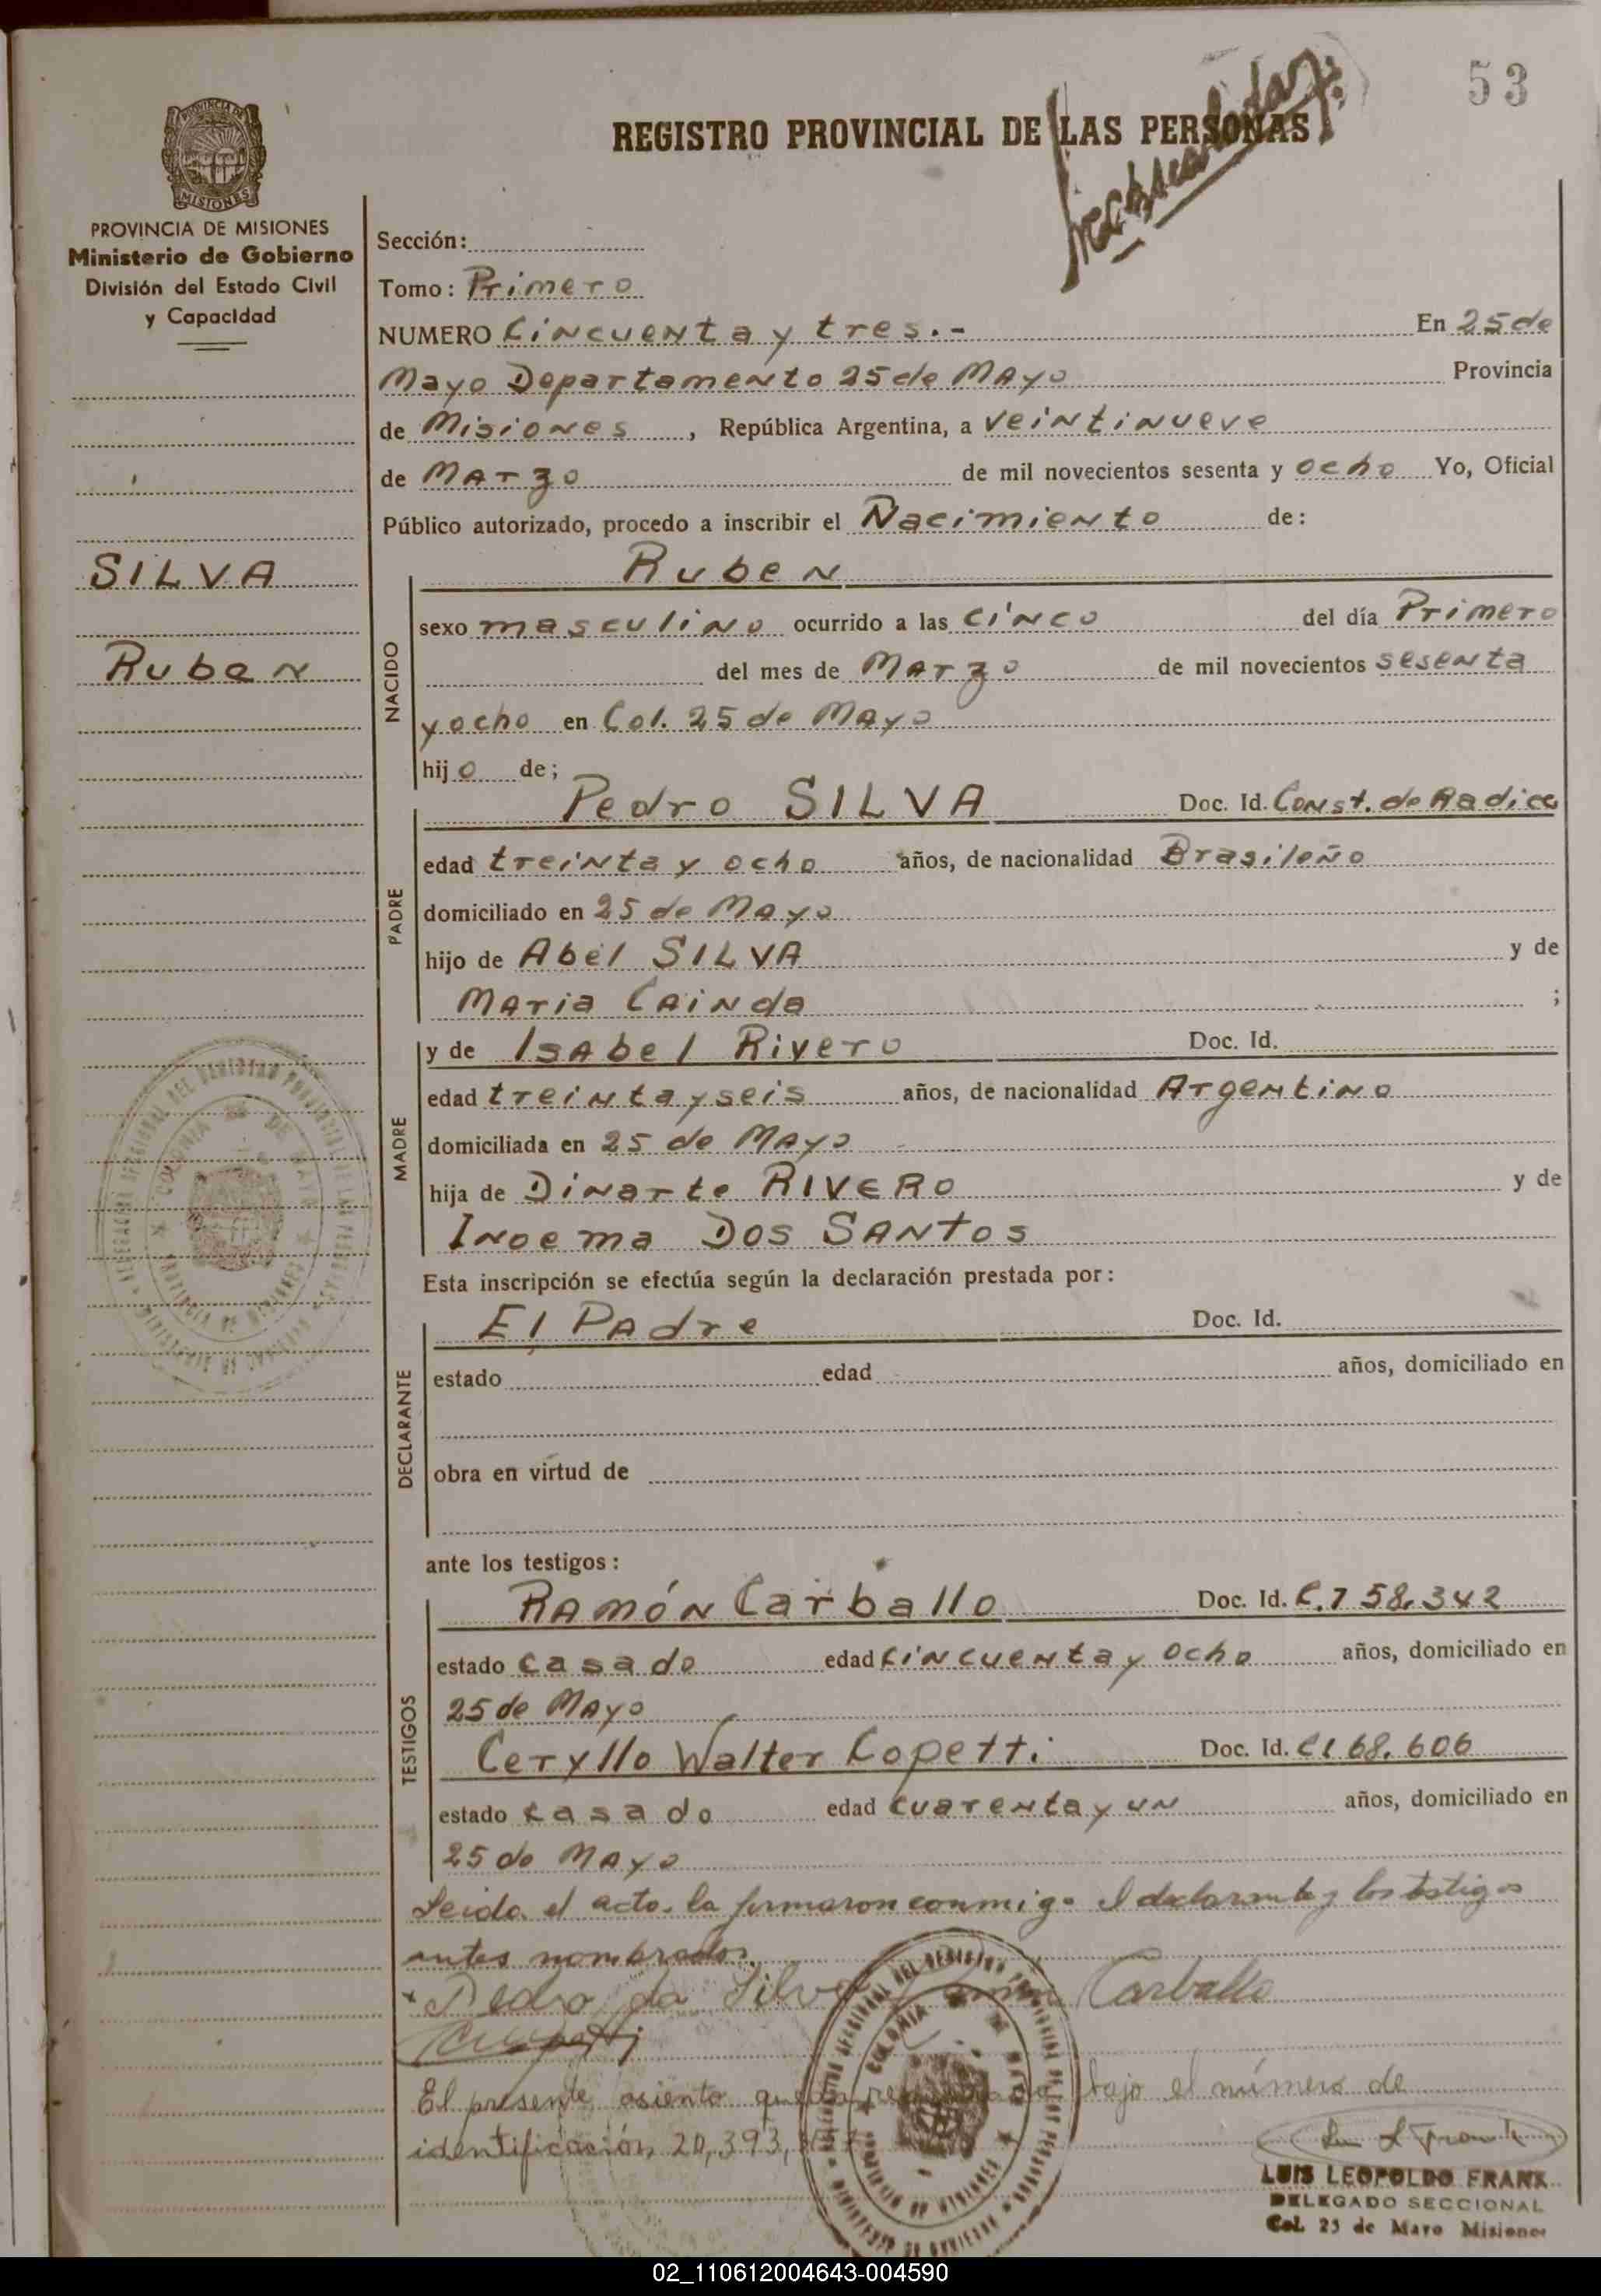 53
REGISTRO PROVINCIAL DE LAS PERSONAS
PROVINCIA DE MISIONES
MISIONES
PROVINCIA DE MISIONES
Ministerio de Gobierno
División del Estado Civil
y Capacidad
SILVA
Ruben
Sección:
Tomo: Primero
NUMERO Cincuenta y tres.- En 25 de
Mayo Departamento 25 de Mayo Provincia
de Misiones, República Argentina, a veintinueve
de Marzo de mil novecientos sesenta y ocho Yo, Oficial
Público autorizado, procedo a inscribir el Nacimiento de:
Ruben
NACIDO
sexo masculino ocurrido a las cinco del día Primero
del mes de Marzo de mil novecientos sesenta
y ocho en Col. 25 de Mayo
hijo de;
Pedro SILVA Doc. Id. Const. de Radicc
PADRE
edad treinta y ocho años, de nacionalidad Brasileño
domiciliado en 25 de Mayo
hijo de Abel SILVA y de
Maria Cainda ;
y de Isabel Rivero Doc. Id.
MADRE
edad treinta y seis años, de nacionalidad Argentino
domiciliada en 25 de Mayo
hija de Dinarte RIVERO y de
Inoema Dos Santos
Esta inscripción se efectúa según la declaración prestada por:
El Padre Doc. Id.
DECLARANTE
estado edad años, domiciliado en
obra en virtud de
ante los testigos:
Ramón Carballo Doc. Id. C.7 58.342
TESTIGOS
estado casado edad cincuenta y ocho años, domiciliado en
25 de Mayo
Ceryllo Walter Copetti Doc. Id. CI 68.606
estado casado edad cuarenta y un años, domiciliado en
25 de Mayo
Leida el acta la firmaron conmigo el declarante y los testigos
antes nombrados.
Pedro da Silva Carballo
El presente asiento queda bajo el número de
identificación 20,393,
COLONIA 25 DE MAYO
PROVINCIA DE MISIONES
LUIS LEOPOLDO FRANK
DELEGADO SECCIONAL
Col. 25 de Mayo Misiones
02_110612004643-004590